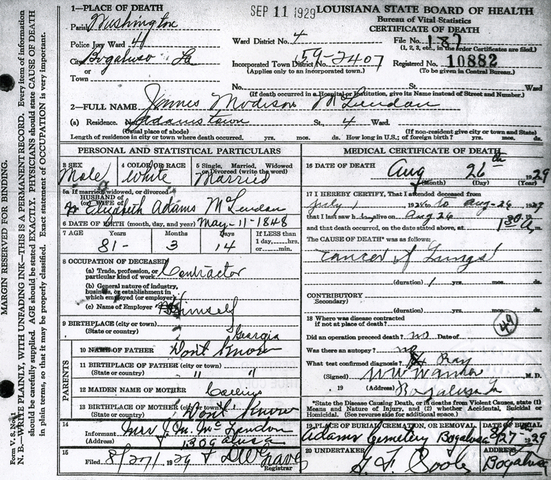 SEP 11 1929
LOUISIANA STATE BOARD OF HEALTH
Bureau of Vital Statistics
CERTIFICATE OF DEATH
1—PLACE OF DEATH
Parish Washington
Police Jury Ward 4 Ward District No. 4 File No.
(1, 2, 3, etc., in the order Certificates are filed.)
City Bogalusa La Incorporated Town District No. 59-2407 Registered No. 10882
Town (Applies only to an incorporated town.) (To be given in Central Bureau.)
(If death occurred in a Hospital or Institution, give Name instead of Street and Number.)
2—FULL NAME James Madison McLendon
(a) Residence. No. Adamstown St. 4 Ward.
(Usual place of abode) (If non-resident give city or town and State)
Length of residence in city or town where death occurred. yrs. mos. ds. How long in U.S., if of foreign birth? yrs. mos. ds.
PERSONAL AND STATISTICAL PARTICULARS
3 SEX Male
4 COLOR OR RACE White
5 Single, Married, Widowed or Divorced (write the word) Married
5a If married, widowed, or divorced
HUSBAND of
(or) WIFE of Elizabeth Adams McLendon
6 DATE OF BIRTH (month, day, and year) May-11-1848
7 AGE Years 81- Months 3 Days 14 If LESS than 1 day, hrs. or min.
8 OCCUPATION OF DECEASED
(a) Trade, profession, or particular kind of work Contractor
(b) General nature of industry, business, or establishment in which employed (or employer)
(c) Name of Employer Himself
9 BIRTHPLACE (city or town)
(State or country) Georgia
PARENTS
10 NAME OF FATHER Dont Know
11 BIRTHPLACE OF FATHER (city or town) " "
(State or country)
12 MAIDEN NAME OF MOTHER
13 BIRTHPLACE OF MOTHER (city or town) Dont Know
(State or country)
14 Informant Mrs J. M. McLendon
(Address) Bogalusa
15 Filed 8/27/1929 Registrar
MEDICAL CERTIFICATE OF DEATH
16 DATE OF DEATH Aug 26th 1929
(Month) (Day) (Year)
17 I HEREBY CERTIFY, That I attended deceased from
July 1 1929 to Aug-26 1929
that I last saw h alive on Aug 26 1929
and that death occurred, on the date stated above, at 1:30 a m.
The CAUSE OF DEATH* was as follows:
Cancer of Lungs
(duration) yrs. mos. ds.
CONTRIBUTORY
(Secondary) (duration) yrs. mos. ds.
18 Where was disease contracted
if not at place of death?
49
Did an operation precede death? no Date of
Was there an autopsy? no
What test confirmed diagnosis? X Ray
(Signed) M. D.
19 Bogalusa La
*State the Disease Causing Death, or in deaths from Violent Causes, state (1) Means and Nature of Injury, and (2) whether Accidental, Suicidal or Homicidal. (See reverse side for additional space.)
19 PLACE OF BURIAL, CREMATION, OR REMOVAL
Adams Cemetery Bogalusa 8/27 1929
20 UNDERTAKER ADDRESS
Bogalusa
MARGIN RESERVED FOR BINDING.
N. B.—WRITE PLAINLY, WITH UNFADING INK—THIS IS A PERMANENT RECORD. Every item of information should be carefully supplied. AGE should be stated EXACTLY. PHYSICIANS should state CAUSE OF DEATH in plain terms, so that it may be properly classified. Exact statement of OCCUPATION is very important.
Form V. S. No. 1